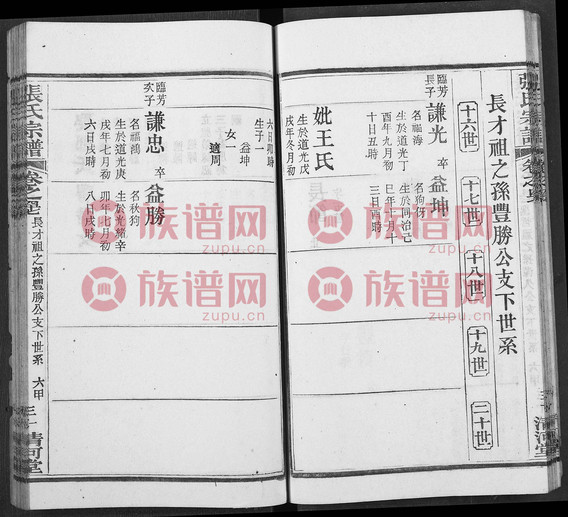 張氏宗譜
長才祖之孫豐勝公支下世系
十六世
十七世
十八世
十九世
二十世
臨芳長子
謙光
名福海
生於道光丁
酉年九月初
十日丑時
卒
益坤
名狗伢
生於同治己
巳年十月十
三日酉時
妣王氏
生於道光戊
戌年冬月初
六日戌時
生子一
益坤
女一
適周
臨芳次子
謙忠
名福鴻
生於道光庚
戌年七月初
六日戌時
卒
益勝
名秋狗
生於光緒辛
卯年七月初
八日戌時
張氏宗譜
長才祖之孫豐勝公支下世系
六甲
三一
清河堂
清河堂
族谱网
zupu.cn
族谱网
zupu.cn
族谱网
zupu.cn
族谱网
zupu.cn